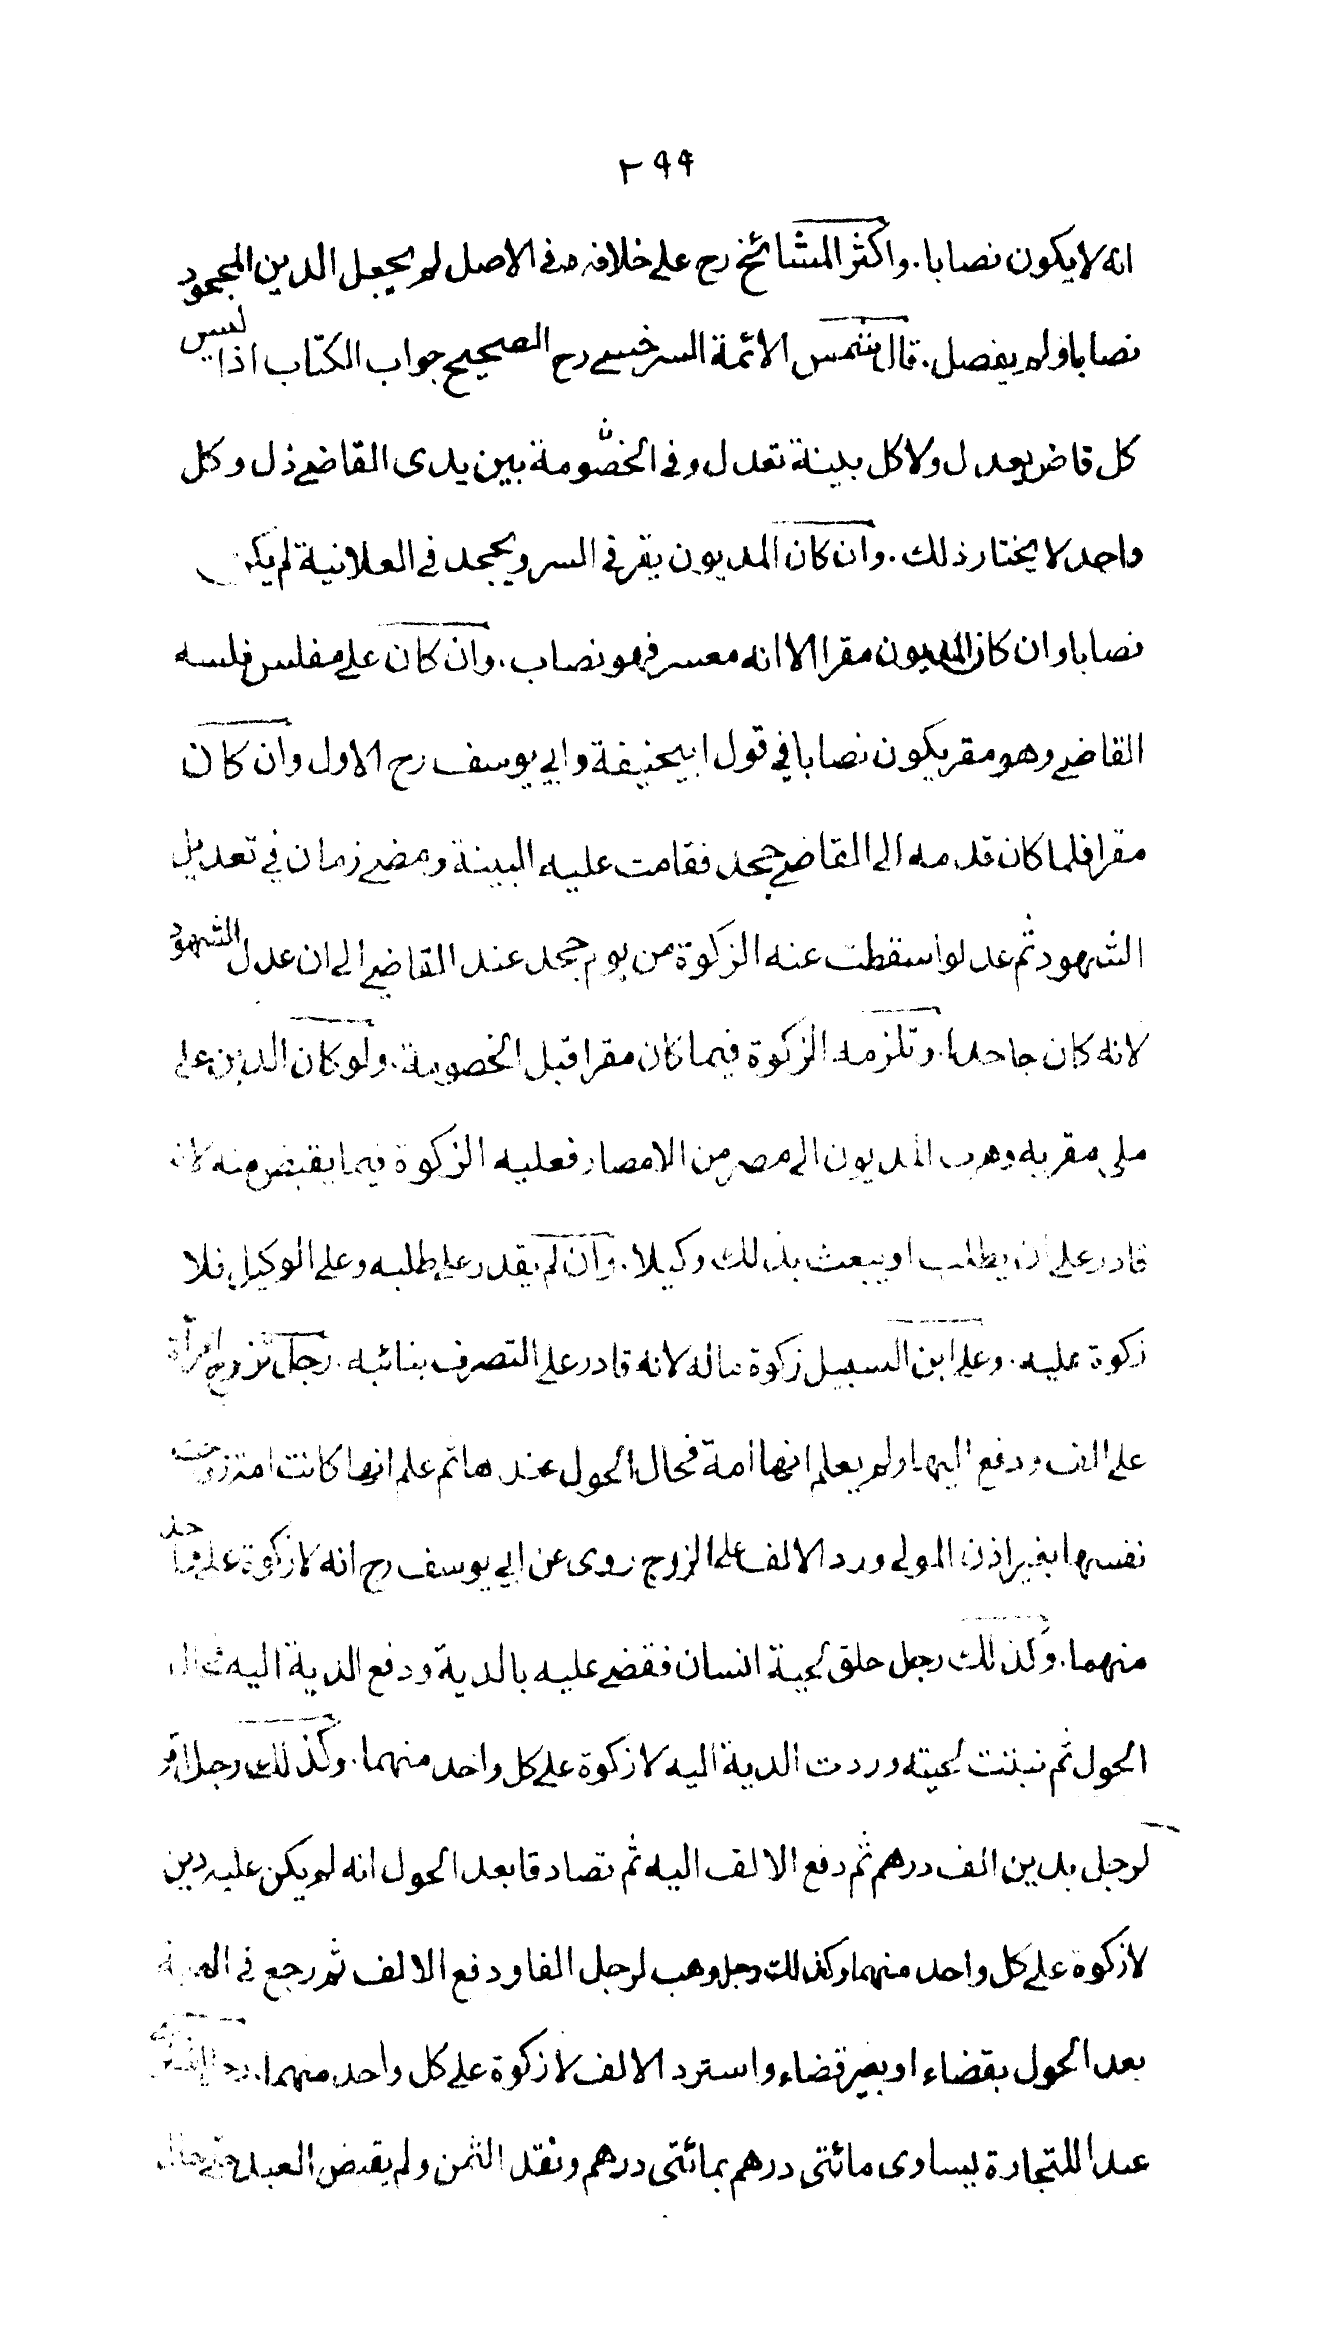 ٢٩٩
انه لا يكون نصابا. واكثر المشائخ رح على خلافه وفى الاصل لم يجعل الدين المجحود
نصابا ولم يفصل. قال شمس الائمة السرخسى رح الصحيح جواب الكتاب اذ ليس
كل قاض يعدل ولا كل بينة تعدل وفى الخصومة بين يدى القاضى ذل وكل
واحد لا يختار ذلك. وان كان المديون يقر فى السر ويجحد فى العلانية لم يكن
نصابا وان كان المديون مقرا الا انه معسر فهو نصاب. وان كان على مفلس فلسه
القاضى وهو مقر يكون نصابا في قول ابيحنيفة وابي يوسف رح الاول وان كان
مقرا فلما كان قدمه الى القاضى جحد فقامت عليه البينة ومضى زمان في تعديل
الشهود ثم عدلوا سقطت عنه الزكوة من يوم جحد عند القاضي الى ان عدل الشهود
لانه كان جاحدا. وتلزمه الزكوة فيما كان مقرا قبل الخصومة. ولو كان الدين على
ملي مقر به وهرب المديون الى مصر من الامصار فعليه الزكوة فيما يقبض منه لانه
قادر على ان يطلب او يبعث بذلك وكيلا. وان لم يقدر على طلبه وعلى الوكيل فلا
زكوة عليه. وعلى ابن السبيل زكوة ماله لانه قادر على التصرف بنائبه. رجل تزوج امرأة
على الف ودفع اليها ولم يعلم انها امة فحال الحول عندها ثم علم انها كانت امة زوجت
نفسها بغير اذن المولى ورد الالف على الزوج روى عن ابي يوسف رح انه لا زكوة على واحد
منهما. وكذلك رجل حلق لحية انسان فقضى عليه بالدية ودفع الدية اليه فحال
الحول ثم نبتت لحيته وردت الدية اليه لا زكوة على كل واحد منهما. وكذلك رجل اقر
لرجل بدين الف درهم ثم دفع الالف اليه ثم تصادقا بعد الحول انه لم يكن عليه دين
لا زكوة على كل واحد منهما وكذلك رجل وهب لرجل الفا ودفع الالف ثم رجع فى الهبة
بعد الحول بقضاء او بغير قضاء واسترد الالف لا زكوة على كل واحد منهما. رجل اشترى
عبدا للتجارة يساوى مائتى درهم بمائتى درهم ونقد الثمن ولم يقبض العبد حتى حال